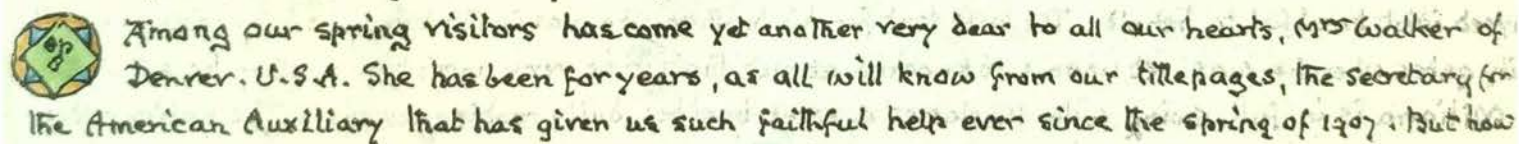 Among our spring visitors has come yet another very dear to all our hearts, Mrs Walker of
Denver. U.S.A. She has been for years, as all will know from our titlepages, the secretary for
the American Auxiliary that has given us such faithful help ever since the spring of 1907. But how